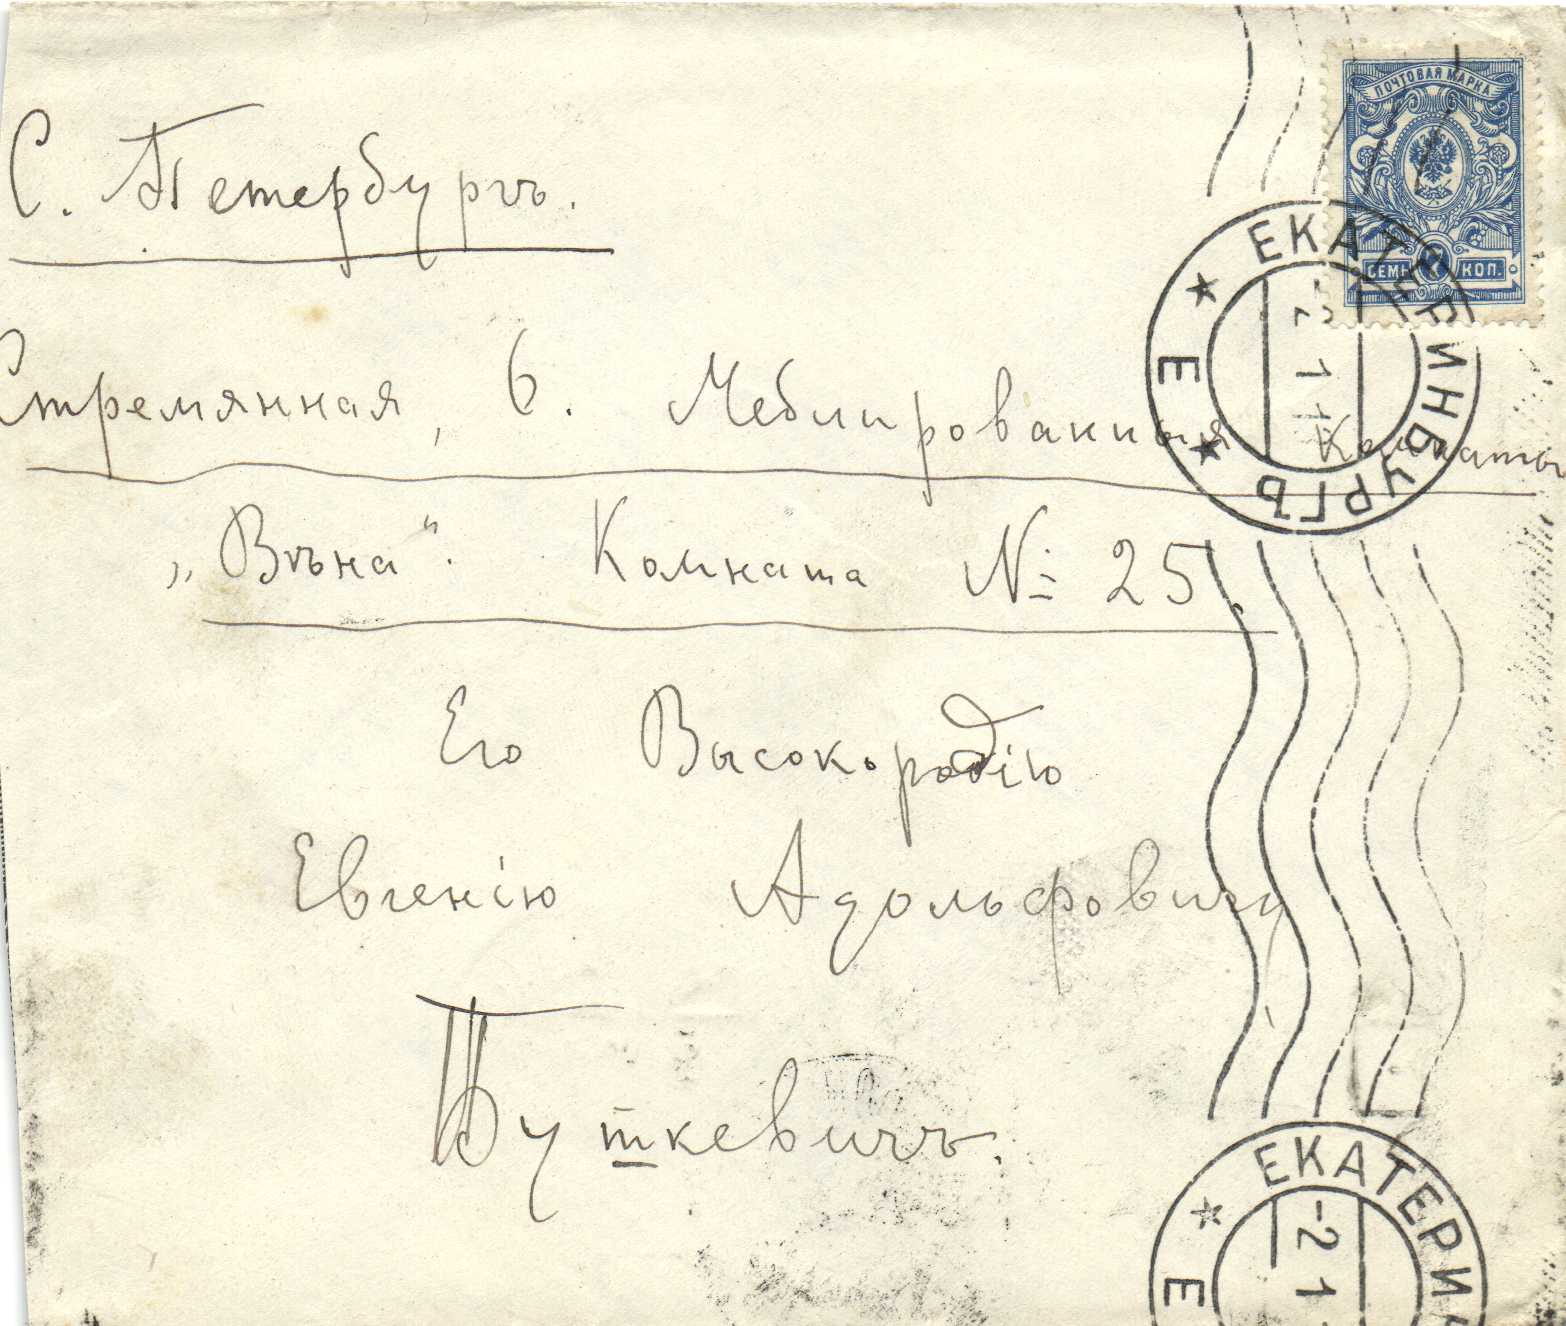 С. Петербургъ.
ПОЧТОВАЯ МАРКА
СЕМЬ 7 КОП.
ЕКАТЕРИНБУРГЪ
★ Е ★
-2 1 1
Стремянная, 6. Меблированныя Комнаты
„Вѣна“. Комната № 25.
Его Высокородію
Евгенію Адольфовичу
Буткевичъ.
ЕКАТЕРИ
★ Е
-2 1